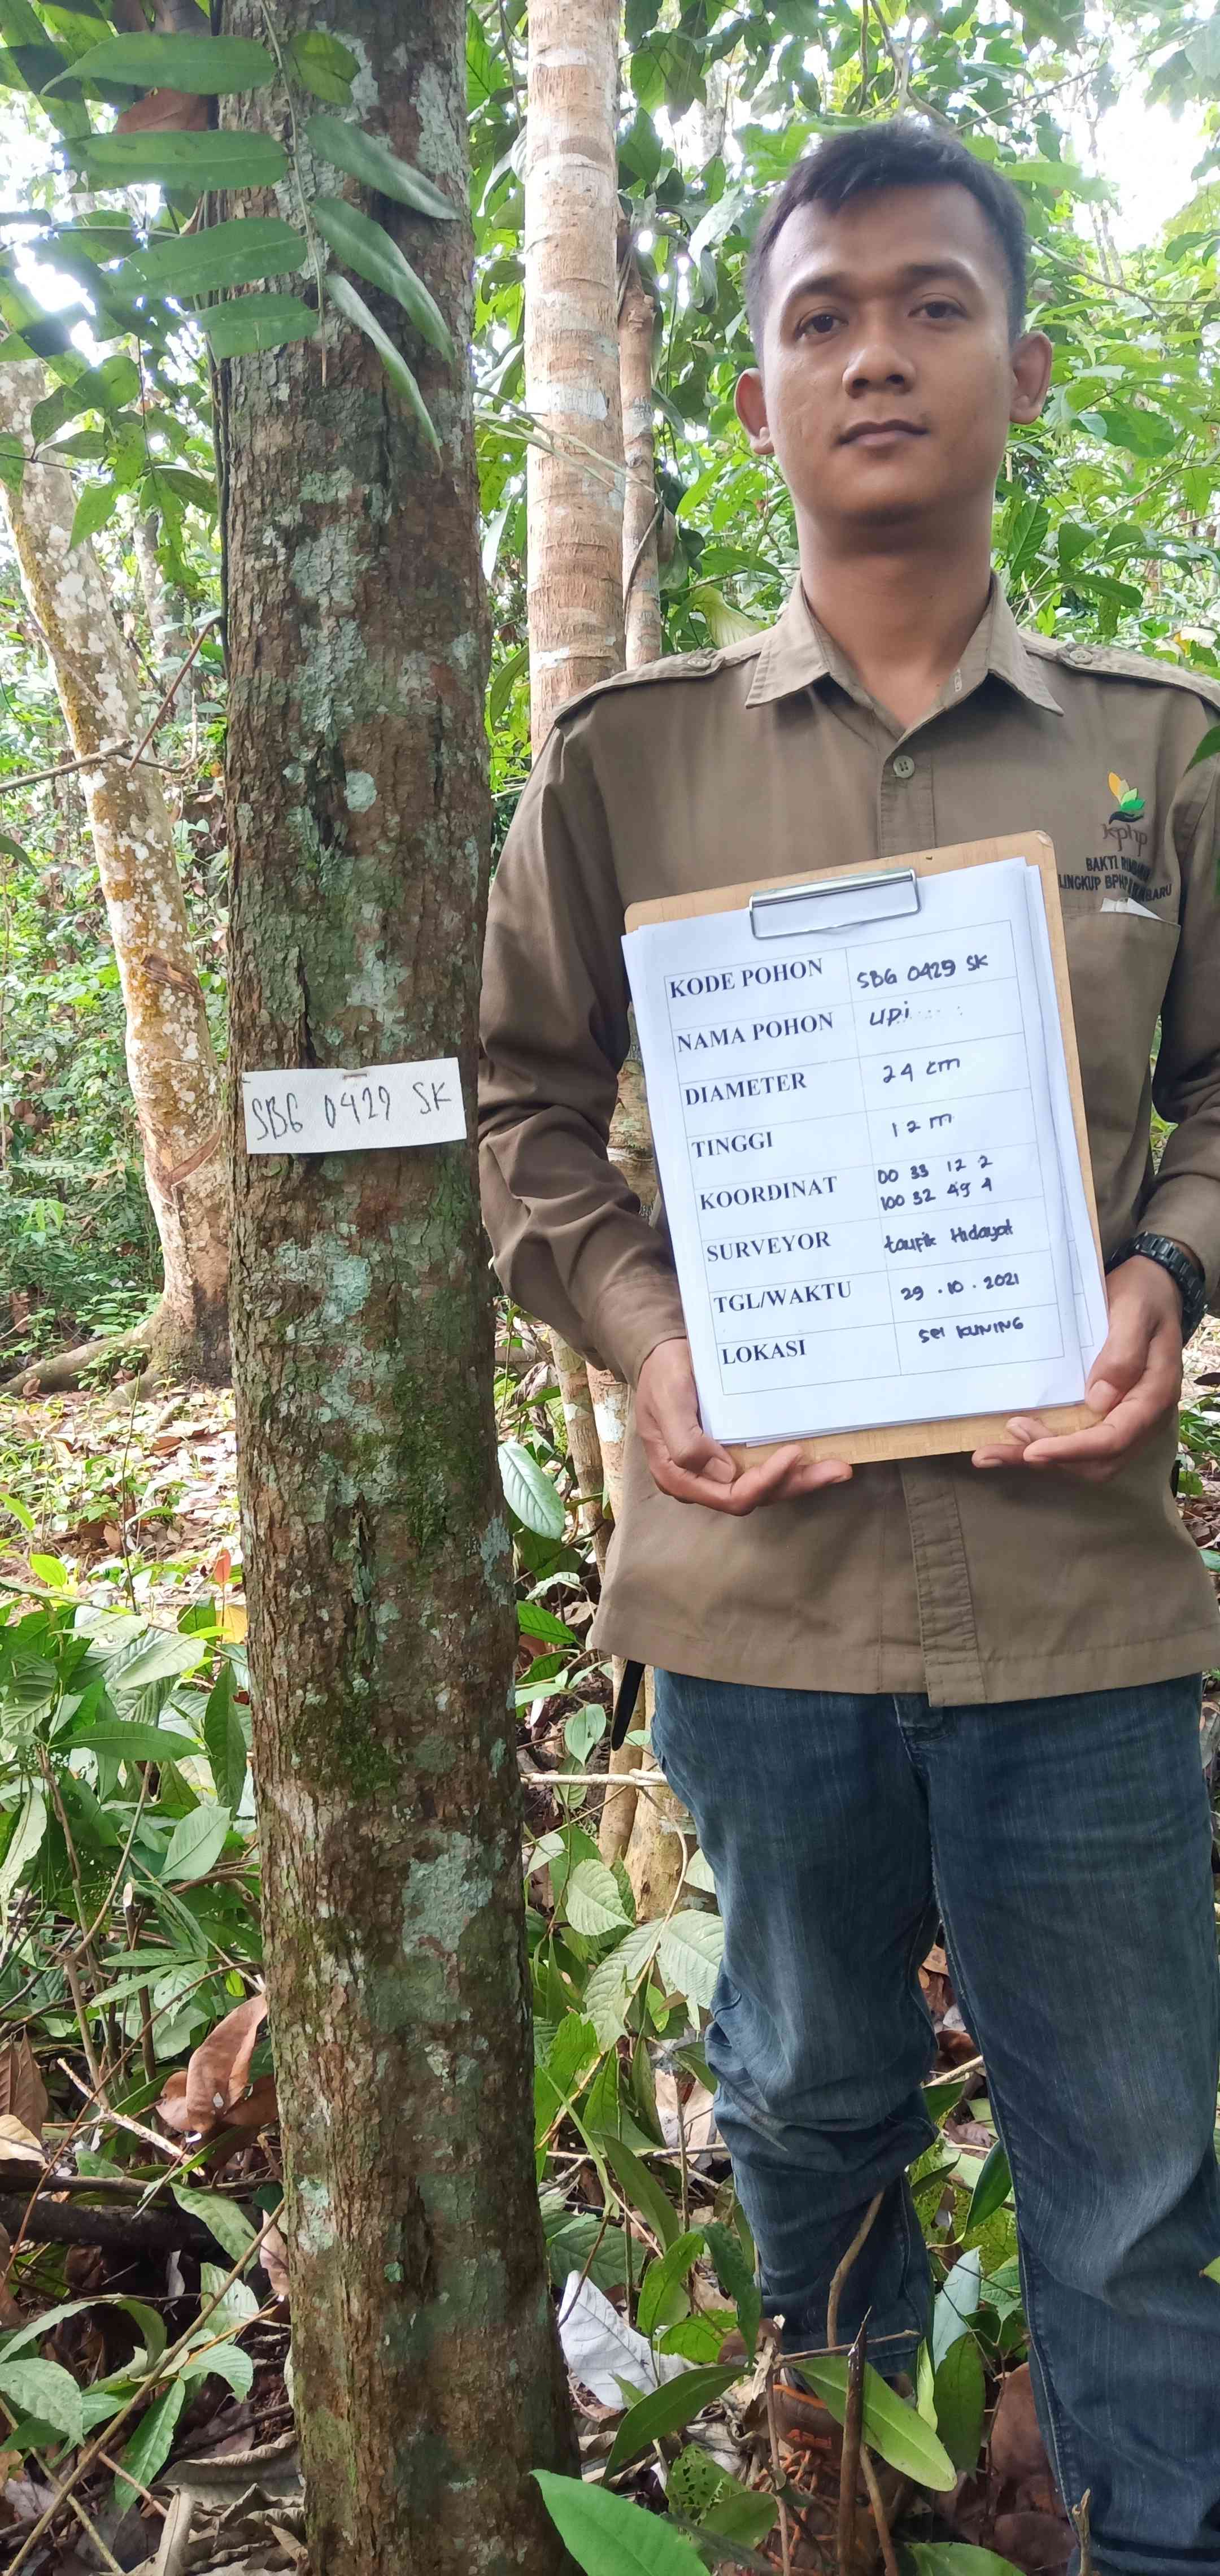 SBG 0429 SK
kphp
BAKTI
LINGKUP BARU
KODE POHON SBG 0429 SK
NAMA POHON UPi
DIAMETER 24 cm
TINGGI 12 m
KOORDINAT 00 33 12 2
100 32 49 4
SURVEYOR taufik Hidayat
TGL/WAKTU 29 . 10 . 2021
LOKASI Sei KUNING